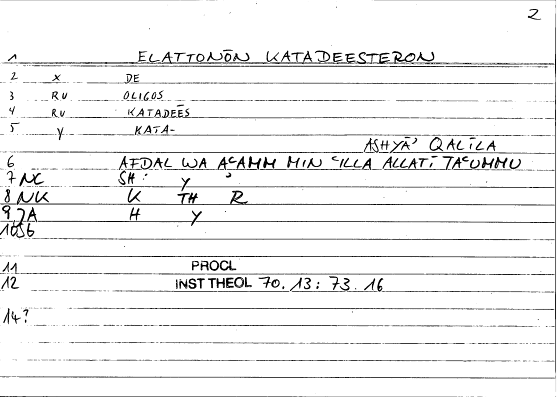 2
1 ELATTONŌN KATADEESTERON
2 x DE
3 RU OLIGOS
4 RU KATADEĒS
5 y KATA-
ASHYĀ' QALĪLA
6 AFDAL WA ACAMM MIN CILLA ALLATĪ TACUMMU
7 NC SH Y '
8 NK K TH R
9 JA H Y
10 S6
11 PROCL
12 INST THEOL 70.13: 73.16
14?